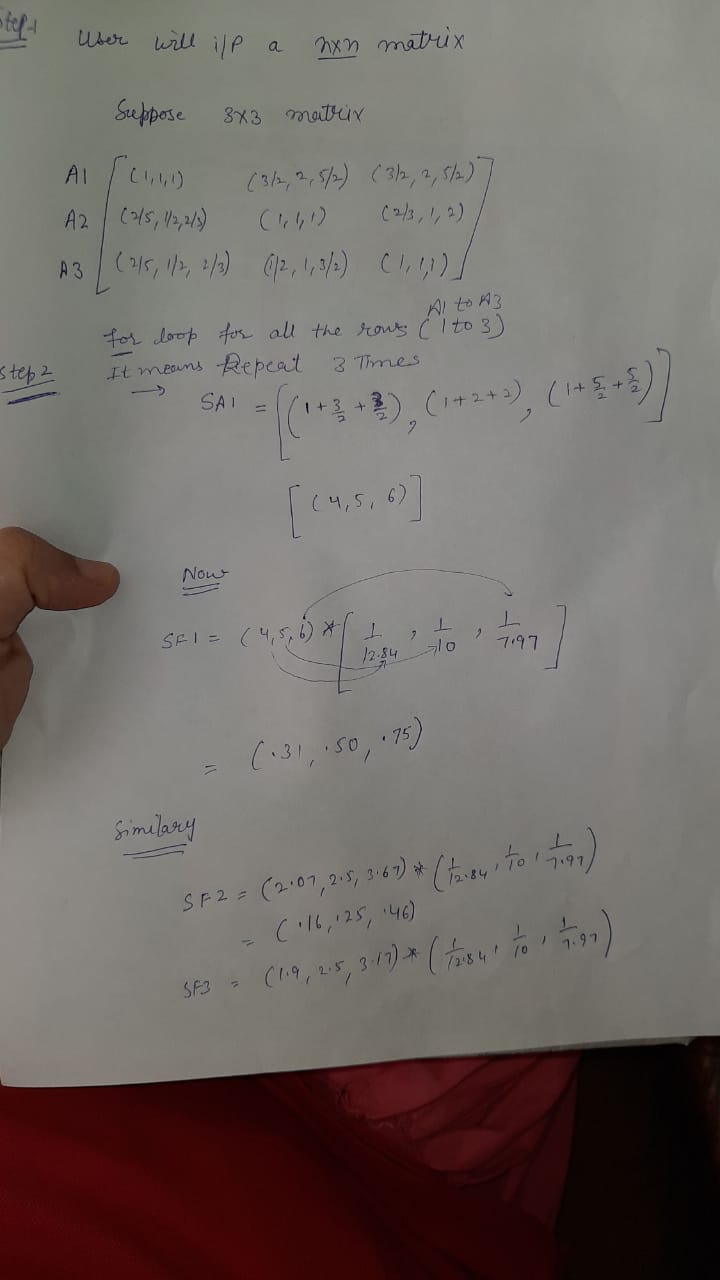 Step-1
User will i/p a nxn matrix
Suppose 3x3 matrix
A1 [ (1,1,1) (3/2, 2, 5/2) (3/2, 2, 5/2) ]
A2 (2/5, 1/2, 2/3) (1,1,1) (2/3, 1, 2)
A3 (2/5, 1/2, 2/3) (1/2, 1, 3/2) (1,1,1)
A1 to A3
for loop for all the rows (1 to 3)
Step 2 It means Repeat 3 Times
→ SA1 = [(1+3/2+3/2), (1+2+2), (1+5/2+5/2)]
[(4,5,6)]
Now
SF1 = (4,5,6) * [1/12.84, 1/10, 1/7.97]
= (.31, .50, .75)
Similary
SF2 = (2.07, 2.5, 3.67) * (1/12.84, 1/10, 1/7.97)
= (.16, .25, .46)
SF3 = (1.9, 2.5, 3.17) * (1/12.84, 1/10, 1/7.97)